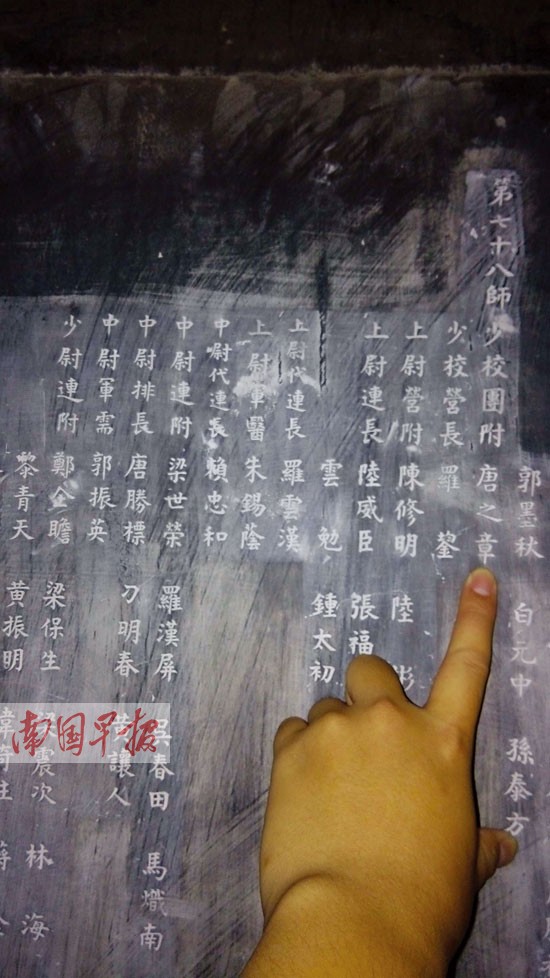 郭墨秋 白元中 孫泰方
第七十八師 少校團附 唐之章
少校營長 羅
上尉營附 陳修明 陸彬
上尉連長 陸威臣 張福
雲勉 鍾太初
上尉代連長 羅雲漢
上尉軍醫 朱錫蔭
中尉代連長 賴忠和
中尉連附 梁世榮 羅漢屏 吳春田 馬熾南
中尉排長 唐勝標 刁明春 讓人
中尉軍需 郭振英
少尉連附 鄭金瞻 梁保生 震次 林海
黎青天 黃振明
南国早报